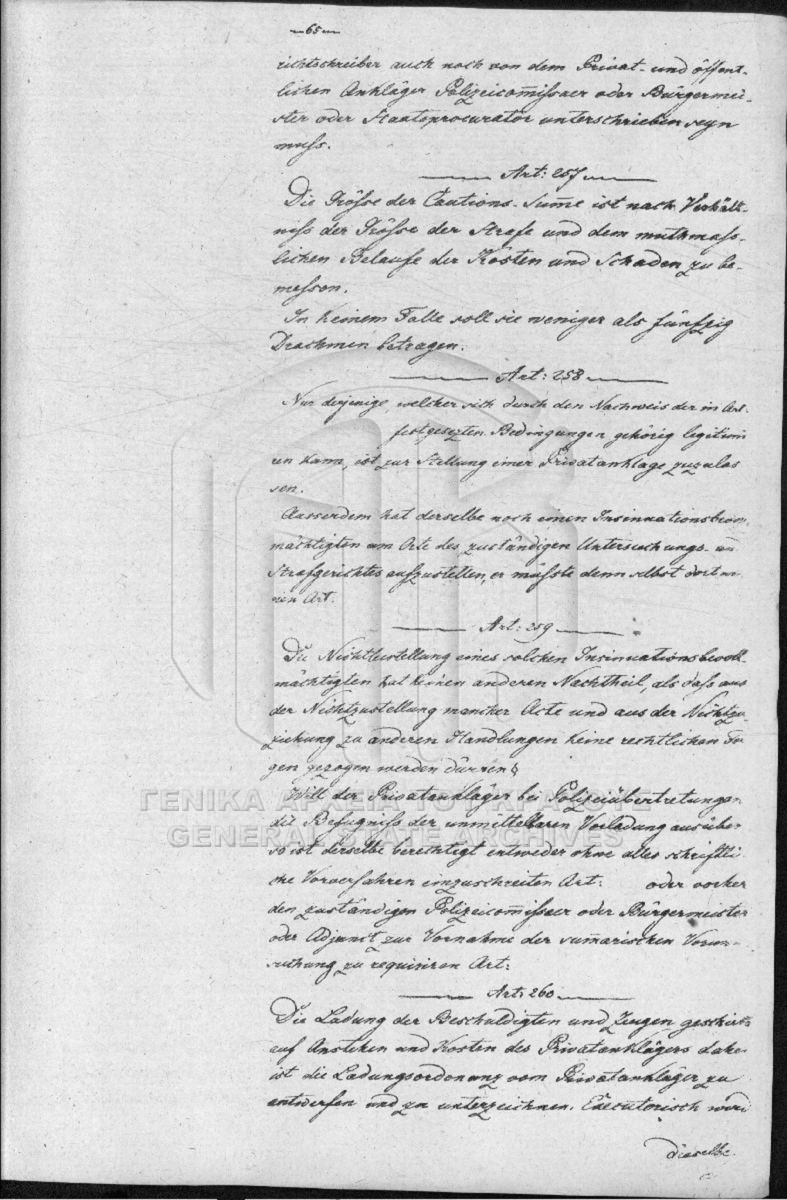 65
richtschreiber auch noch von dem Privat- und öffent-
lichen Ankläger Polizeicom̄issaer oder Bürgermei-
ster oder Staatsprocurator unterschrieben seyn
muss.
Art: 257
Die Grösse der Cautions-Sum̄e ist nach Verhält-
niss der Grösse der Strafe und dem muthmass-
lichen Belaufe der Kosten und Schaden zu be-
messen.
In keinem Falle soll sie weniger als fünfzig
Drachmen betragen.
Art: 258
Nur derjenige, welcher sich durch den Nachweis der in Art.
festgesezten Bedingungen gehörig legitimi
ren kann, ist zur Stellung einer Privatanklage zuzulas
sen.
Ausserdem hat derselbe noch einen Insinuationsbevoll
mächtigten am Orte des zuständigen Untersuchungs- un
Strafgerichtes aufzustellen, er müsste denn selbst dort
Art.
Art: 259
Die Nichtbestellung eines solchen Insinuationsbevoll
mächtigten hat keinen anderen Nachtheil, als dass aus
der Nichtzustellung mancher Acte und aus der Nichtzu
ziehung zu anderen Handlungen keine rechtlichen Fol
gen gezogen werden dürfen
ΓΕΝΙΚΑ ΑΡΧΕΙΑ ΤΟΥ ΚΡΑΤΟΥΣ
GENERAL STATE ARCHIVES
Will der Privatankläger bei Polizeiübertretungen
die Befugniss der unmittelbaren Vorladung ausüben
so ist derselbe berechtigt entweder ohne alles schriftli
che Vorverfahren einzuschreiten Art: oder vorher
den zuständigen Polizeicom̄issaer oder Bürgermeister
oder Adjunct zur Vornahme der sum̄arischen Vorun-
suchung zu requiriren Art:
Art: 260
Die Ladung der Beschuldigten und Zeugen geschieht
auf Anstehen und Kosten des Privatanklägers daher
ist die Ladungsordonanz vom Privatankläger zu
entwerfen und zu unterzeichnen. Executorisch wird
dieselbe